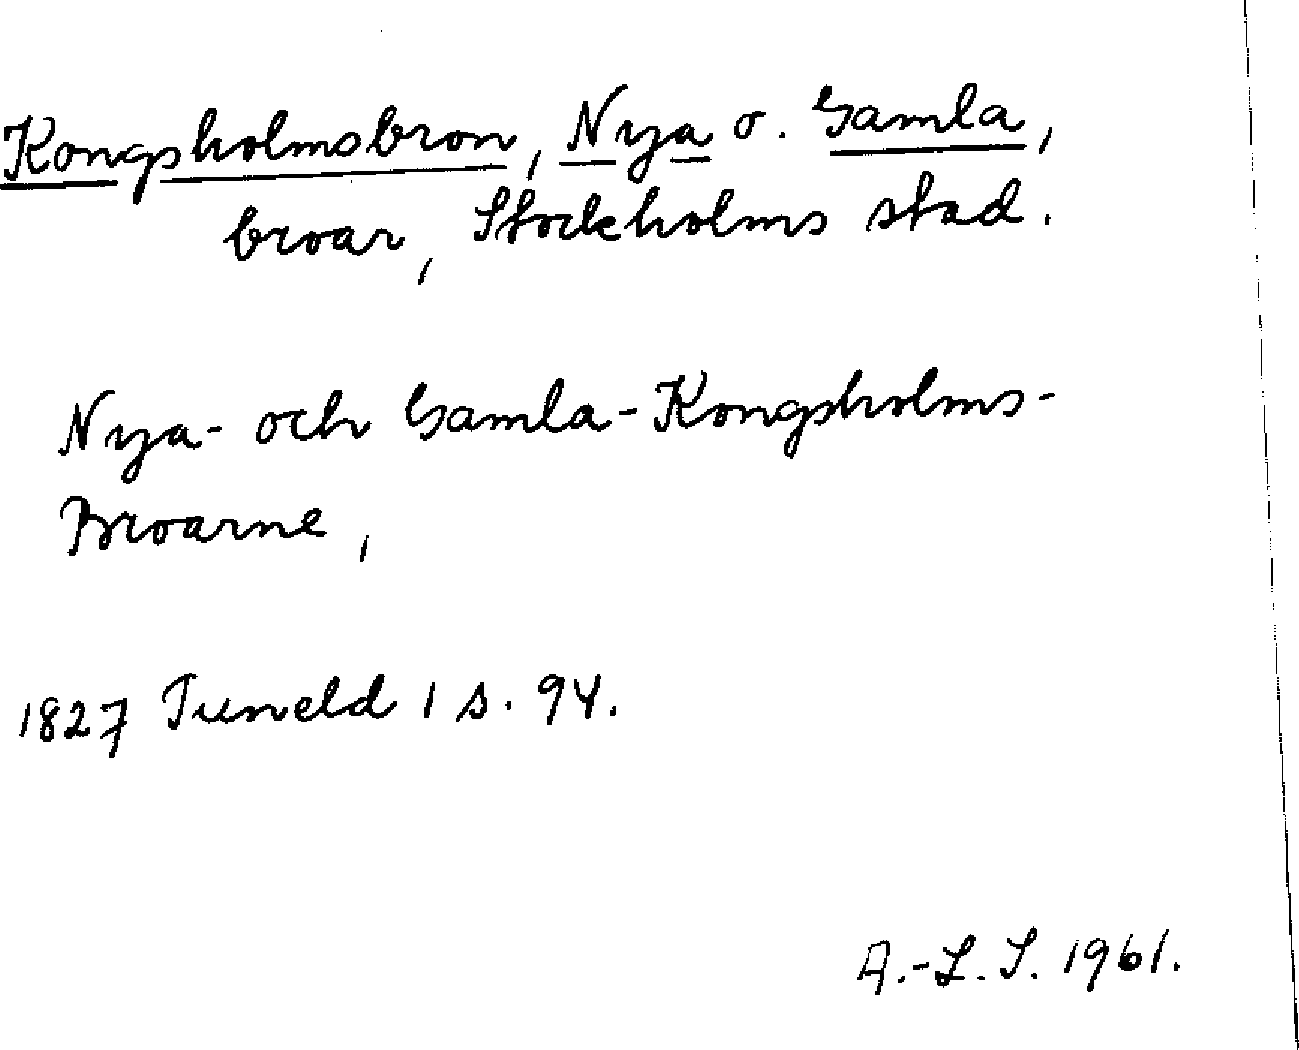 Kongsholmsbron, Nya o. Gamla,
broar, Stockholms stad.
Nya- och Gamla-Kongsholms-
Broarne,
1827 Tuneld 1 s. 94.
A.-L. S. 1961.